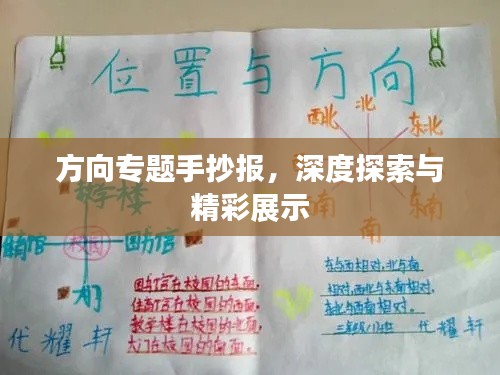 位置与方向
北
西北
东北
方向专题手抄报，深度探索与
精彩展示
教学楼
东南
南
校园
国防官
大门
国防官在校园的东面。
体育官在校园的西面。
教学楼在校园的北面。
大门在校园的南面。
东与西相对，北与南
相对，西北与东南相对，
东北与西南相对。
代耀轩
代耀轩